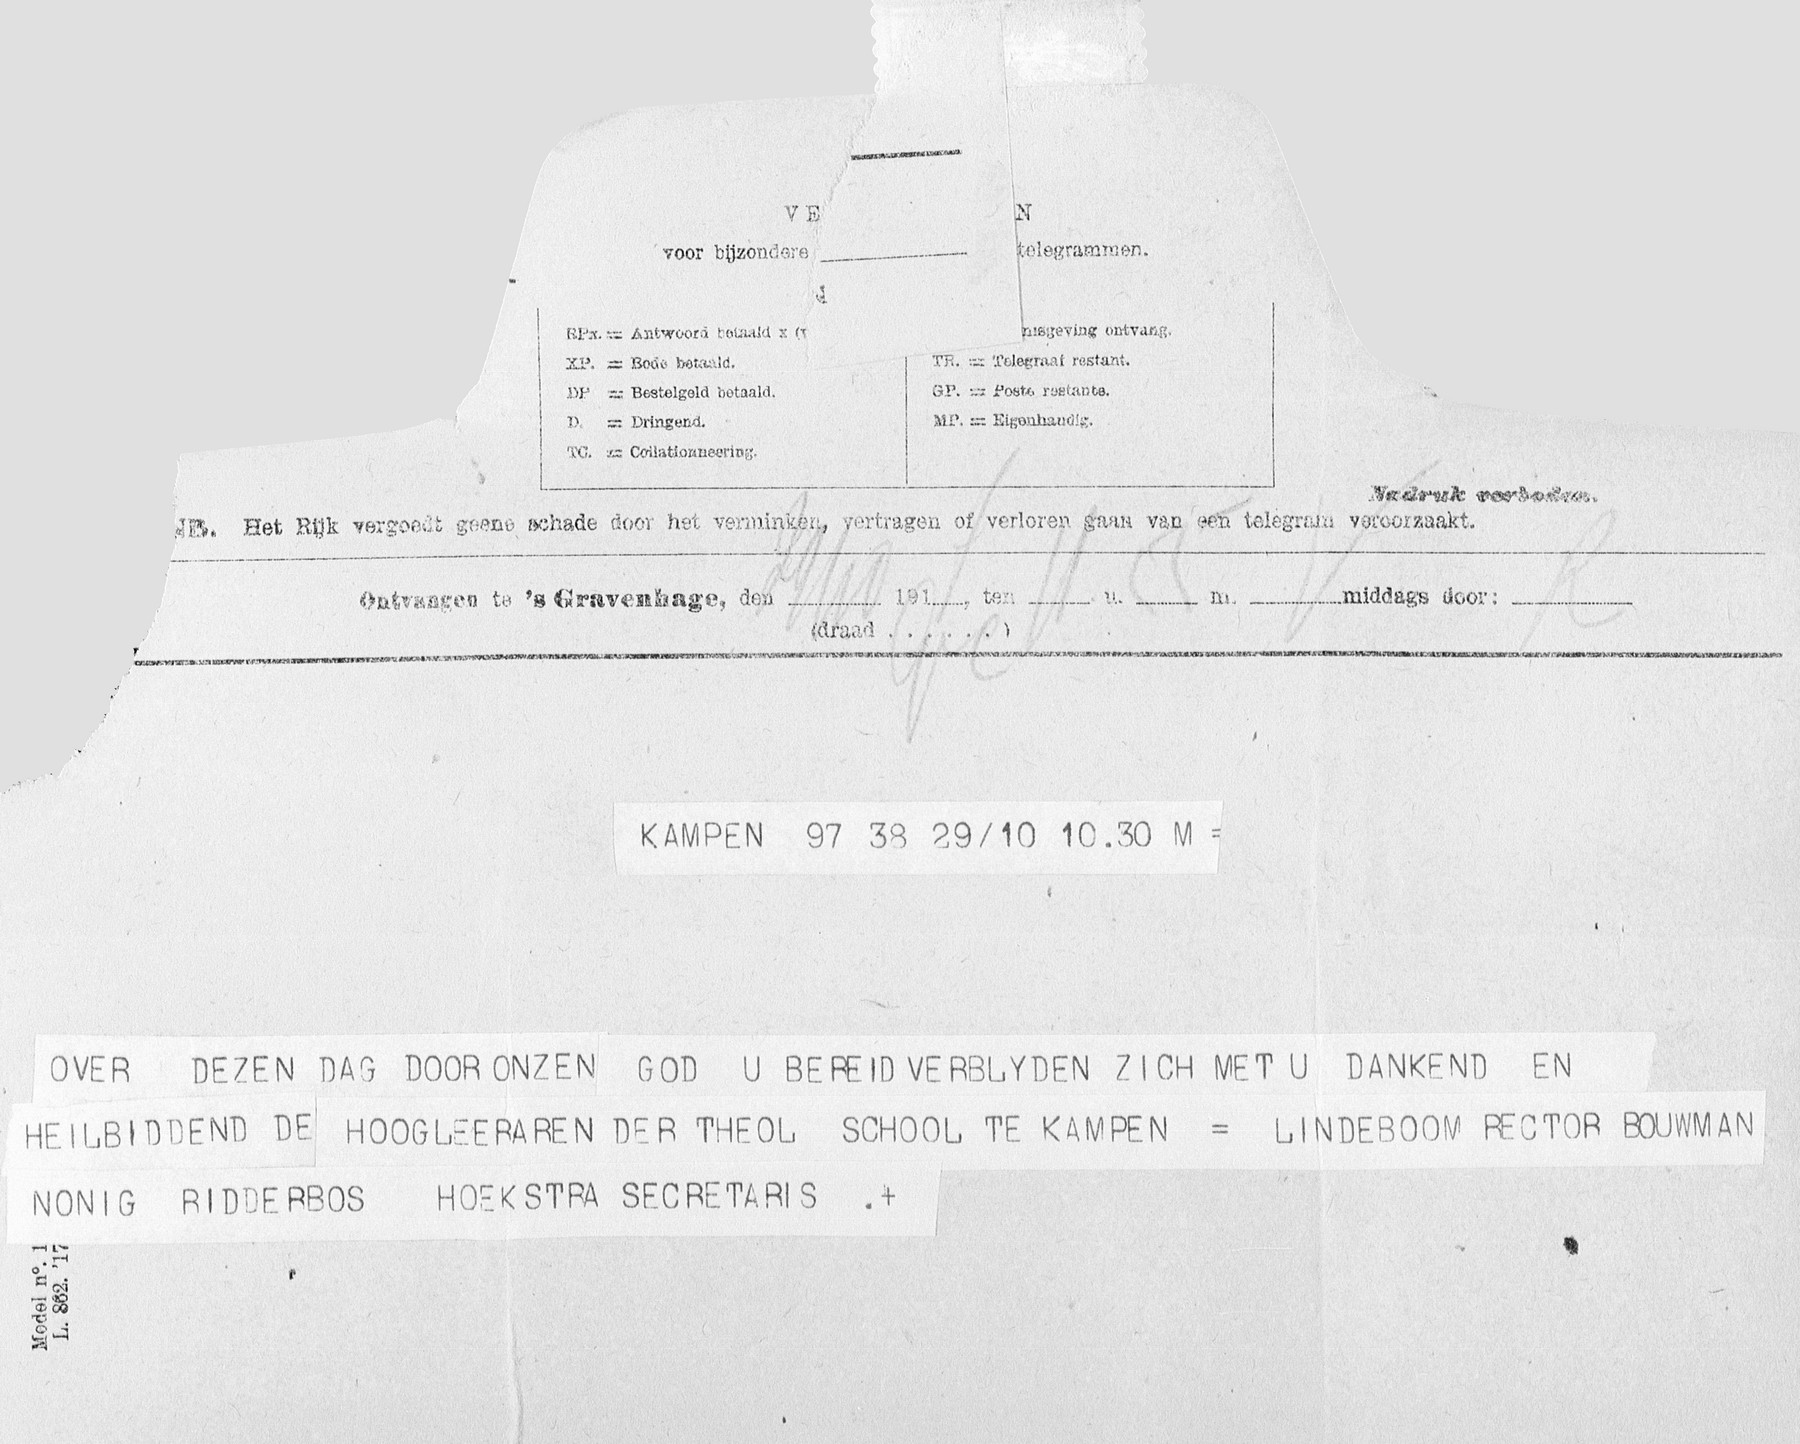 VE N
voor bijzondere telegrammen.
d
RPx. = Antwoord betaald x (v
XP. = Bode betaald.
DP = Bestelgeld betaald.
D. = Dringend.
TC. = Collationneering.
nisgeving ontvang.
TR. = Telegraaf restant.
GP. = Poste restante.
MP. = Eigenhandig.
Nadruk verboden.
NB. Het Rijk vergoedt geene schade door het verminken, vertragen of verloren gaan van een telegram veroorzaakt.
Ontvangen te 's Gravenhage, den 191 , ten u. m. middags door:
(draad . . . . . . )
KAMPEN 97 38 29/10 10.30 M =
OVER DEZEN DAG DOOR ONZEN GOD U BEREID VERBLYDEN ZICH MET U DANKEND EN
HEILBIDDEND DE HOOGLEERAREN DER THEOL SCHOOL TE KAMPEN = LINDEBOOM RECTOR BOUWMAN
NONIG RIDDERBOS HOEKSTRA SECRETARIS .+
Model nº. 1
L. 862. '17